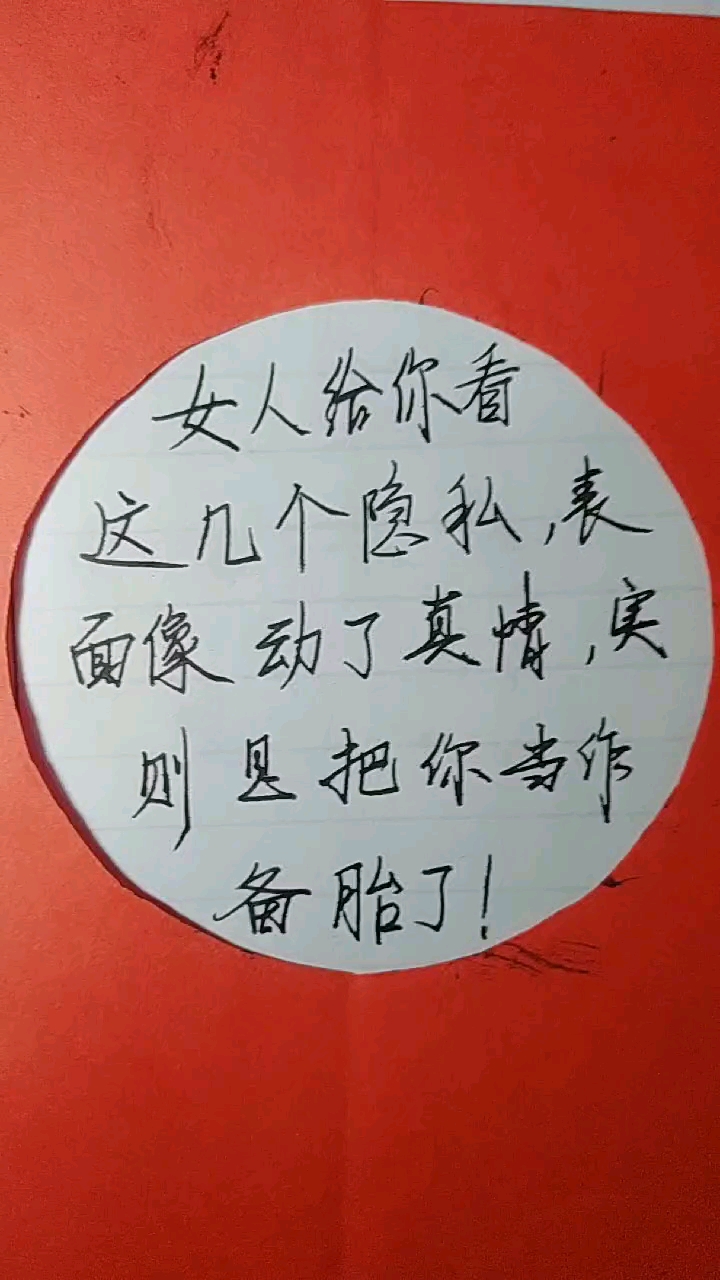 女人给你看
这几个隐私,表
面像动了真情,实
则是把你当作
备胎了!